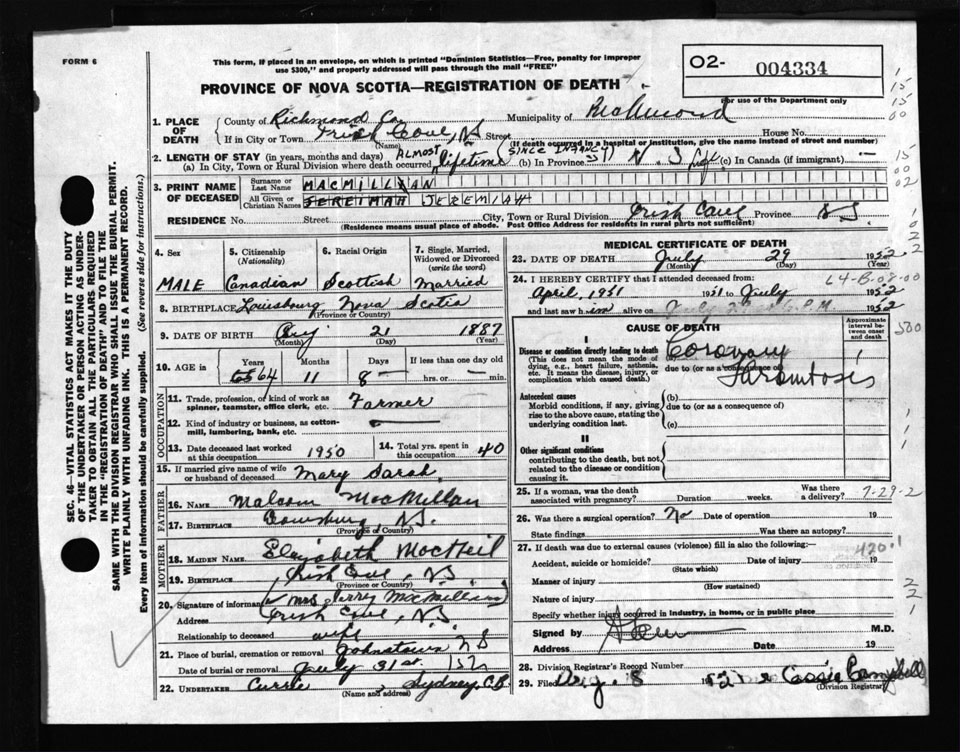 FORM 6
This form, if placed in an envelope, on which is printed "Dominion Statistics—Free, penalty for improper
use $300," and properly addressed will pass through the mail "FREE"
O2- 004334
For use of the Department only
PROVINCE OF NOVA SCOTIA—REGISTRATION OF DEATH
1. PLACE OF DEATH
County of Richmond Co. Municipality of Richmond
If in City or Town Irish Cove, N.S. Street House No.
(Name) (If death occurred in a hospital or institution, give the name instead of street and number)
2. LENGTH OF STAY (in years, months and days) ALMOST (SINCE INFANCY)
(a) In City, Town or Rural Division where death occurred lifetime (b) In Province N.S. (c) In Canada (if immigrant) —
3. PRINT NAME OF DECEASED
Surname or Last Name MACMILLAN
All Given or Christian Names JEREIMAH JEREMIAH
RESIDENCE No. Street City, Town or Rural Division Irish Cove Province N.S.
(Residence means usual place of abode. Post Office Address for residents in rural parts not sufficient)
4. Sex MALE
5. Citizenship (Nationality) Canadian
6. Racial Origin Scottish
7. Single, Married, Widowed or Divorced (write the word) Married
8. BIRTHPLACE Louisbourg Nova Scotia
(Province or Country)
9. DATE OF BIRTH Aug 21 1887
(Month) (Day) (Year)
10. AGE in Years 64 Months 11 Days 8 If less than one day old — hrs. or — min.
OCCUPATION
11. Trade, profession, or kind of work as spinner, teamster, office clerk, etc. Farmer
12. Kind of industry or business, as cotton-mill, lumbering, bank, etc. —
13. Date deceased last worked at this occupation 1950
14. Total yrs. spent in this occupation 40
15. If married give name of wife or husband of deceased Mary Sarah
FATHER
16. NAME Malcom MacMillan
17. BIRTHPLACE Louisburg, N.S.
(Province or Country)
MOTHER
18. MAIDEN NAME Elizabeth MacNeil
19. BIRTHPLACE Irish Cove, N.S.
(Province or Country)
20. Signature of informant Mrs Jerry MacMillan
Address Irish Cove, N.S.
Relationship to deceased wife
21. Place of burial, cremation or removal Johnstown N S
Date of burial or removal July 31st 1952
22. UNDERTAKER Currie, Sydney C.B.
(Name and address)
MEDICAL CERTIFICATE OF DEATH
23. DATE OF DEATH July 29 1952
(Month) (Day)
24. I HEREBY CERTIFY that I attended deceased from:
L4-B-08-00
April, 1951 1951 to July 1952
and last saw him alive on July P.M. 1952
CAUSE OF DEATH
Approximate interval between onset and death
500
I
Disease or condition directly leading to death
(This does not mean the mode of dying, e.g., heart failure, asthenia, etc. It means the disease, injury, or complication which caused death.)
Coronary
due to (or as a consequence of)
Thrombosis
Antecedent causes
Morbid conditions, if any, giving rise to the above cause, stating the underlying condition last.
(b)
due to (or as a consequence of)
(c)
II
Other significant conditions
contributing to the death, but not related to the disease or condition causing it.
25. If a woman, was the death associated with pregnancy? Duration weeks. Was there a delivery?
7-29-2
26. Was there a surgical operation? No Date of operation 19
State findings Was there an autopsy?
27. If death was due to external causes (violence) fill in also the following:—
420.1
Accident, suicide or homicide? Date of injury 19
(State which)
Manner of injury
(How sustained)
Nature of injury
Specify whether injury occurred in industry, in home, or in public place
Signed by M.D.
Address Date 19
28. Division Registrar's Record Number
29. Filed Aug. 8 1952 Cassie Campbell
(Division Registrar)
SEC. 46—VITAL STATISTICS ACT MAKES IT THE DUTY
OF THE UNDERTAKER OR PERSON ACTING AS UNDER-
TAKER TO OBTAIN ALL THE PARTICULARS REQUIRED
IN THE "REGISTRATION OF DEATH" AND TO FILE THE
SAME WITH THE DIVISION REGISTRAR WHO SHALL ISSUE THE BURIAL PERMIT.
WRITE PLAINLY WITH UNFADING INK. THIS IS A PERMANENT RECORD.
Every item of information should be carefully supplied. (See reverse side for instructions.)